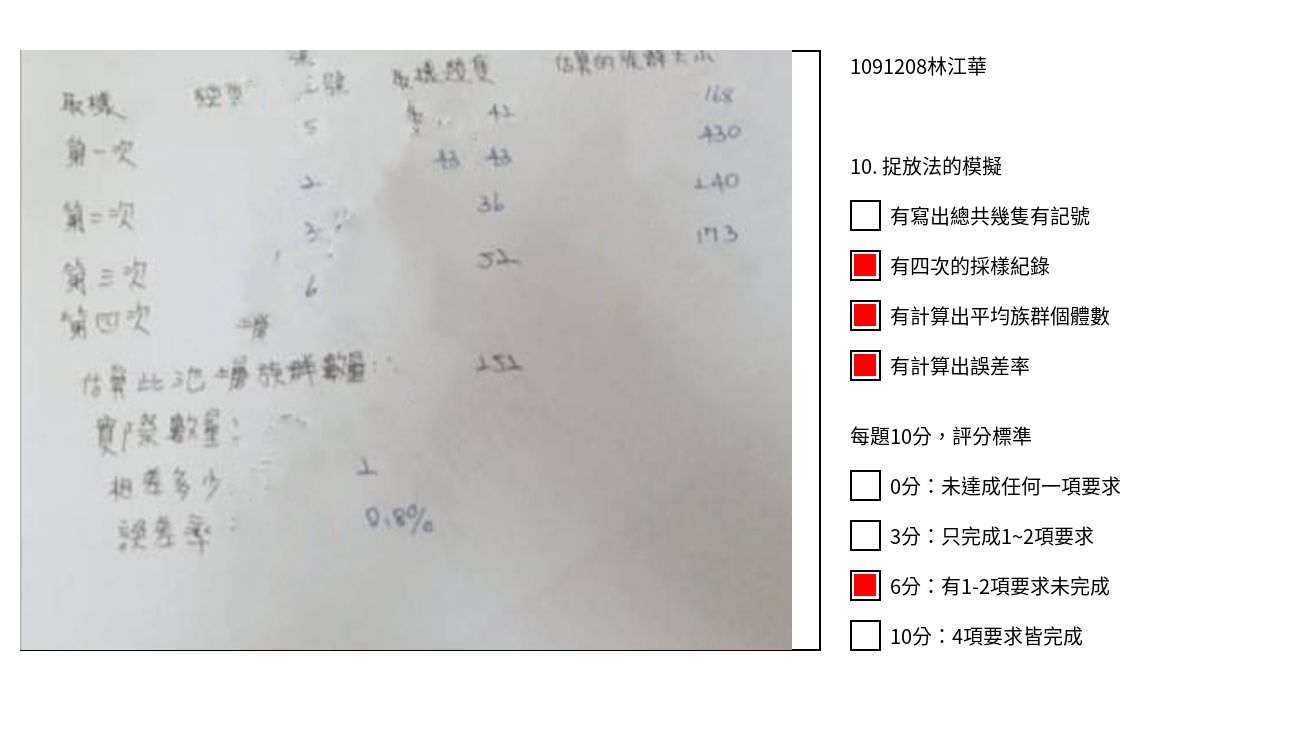 取樣 三號 取樣總隻 估算的族群大小
第一次 5 42 168
第二次 2 43 43 430
第三次 3 36 240
第四次 6 52 173
估算此池塘族群數量: 252
實際數量:
相差多少 2
誤差率: 0.8%
1091208林江華
10. 捉放法的模擬
有寫出總共幾隻有記號
有四次的採樣紀錄
有計算出平均族群個體數
有計算出誤差率
每題10分，評分標準
0分：未達成任何一項要求
3分：只完成1~2項要求
6分：有1-2項要求未完成
10分：4項要求皆完成